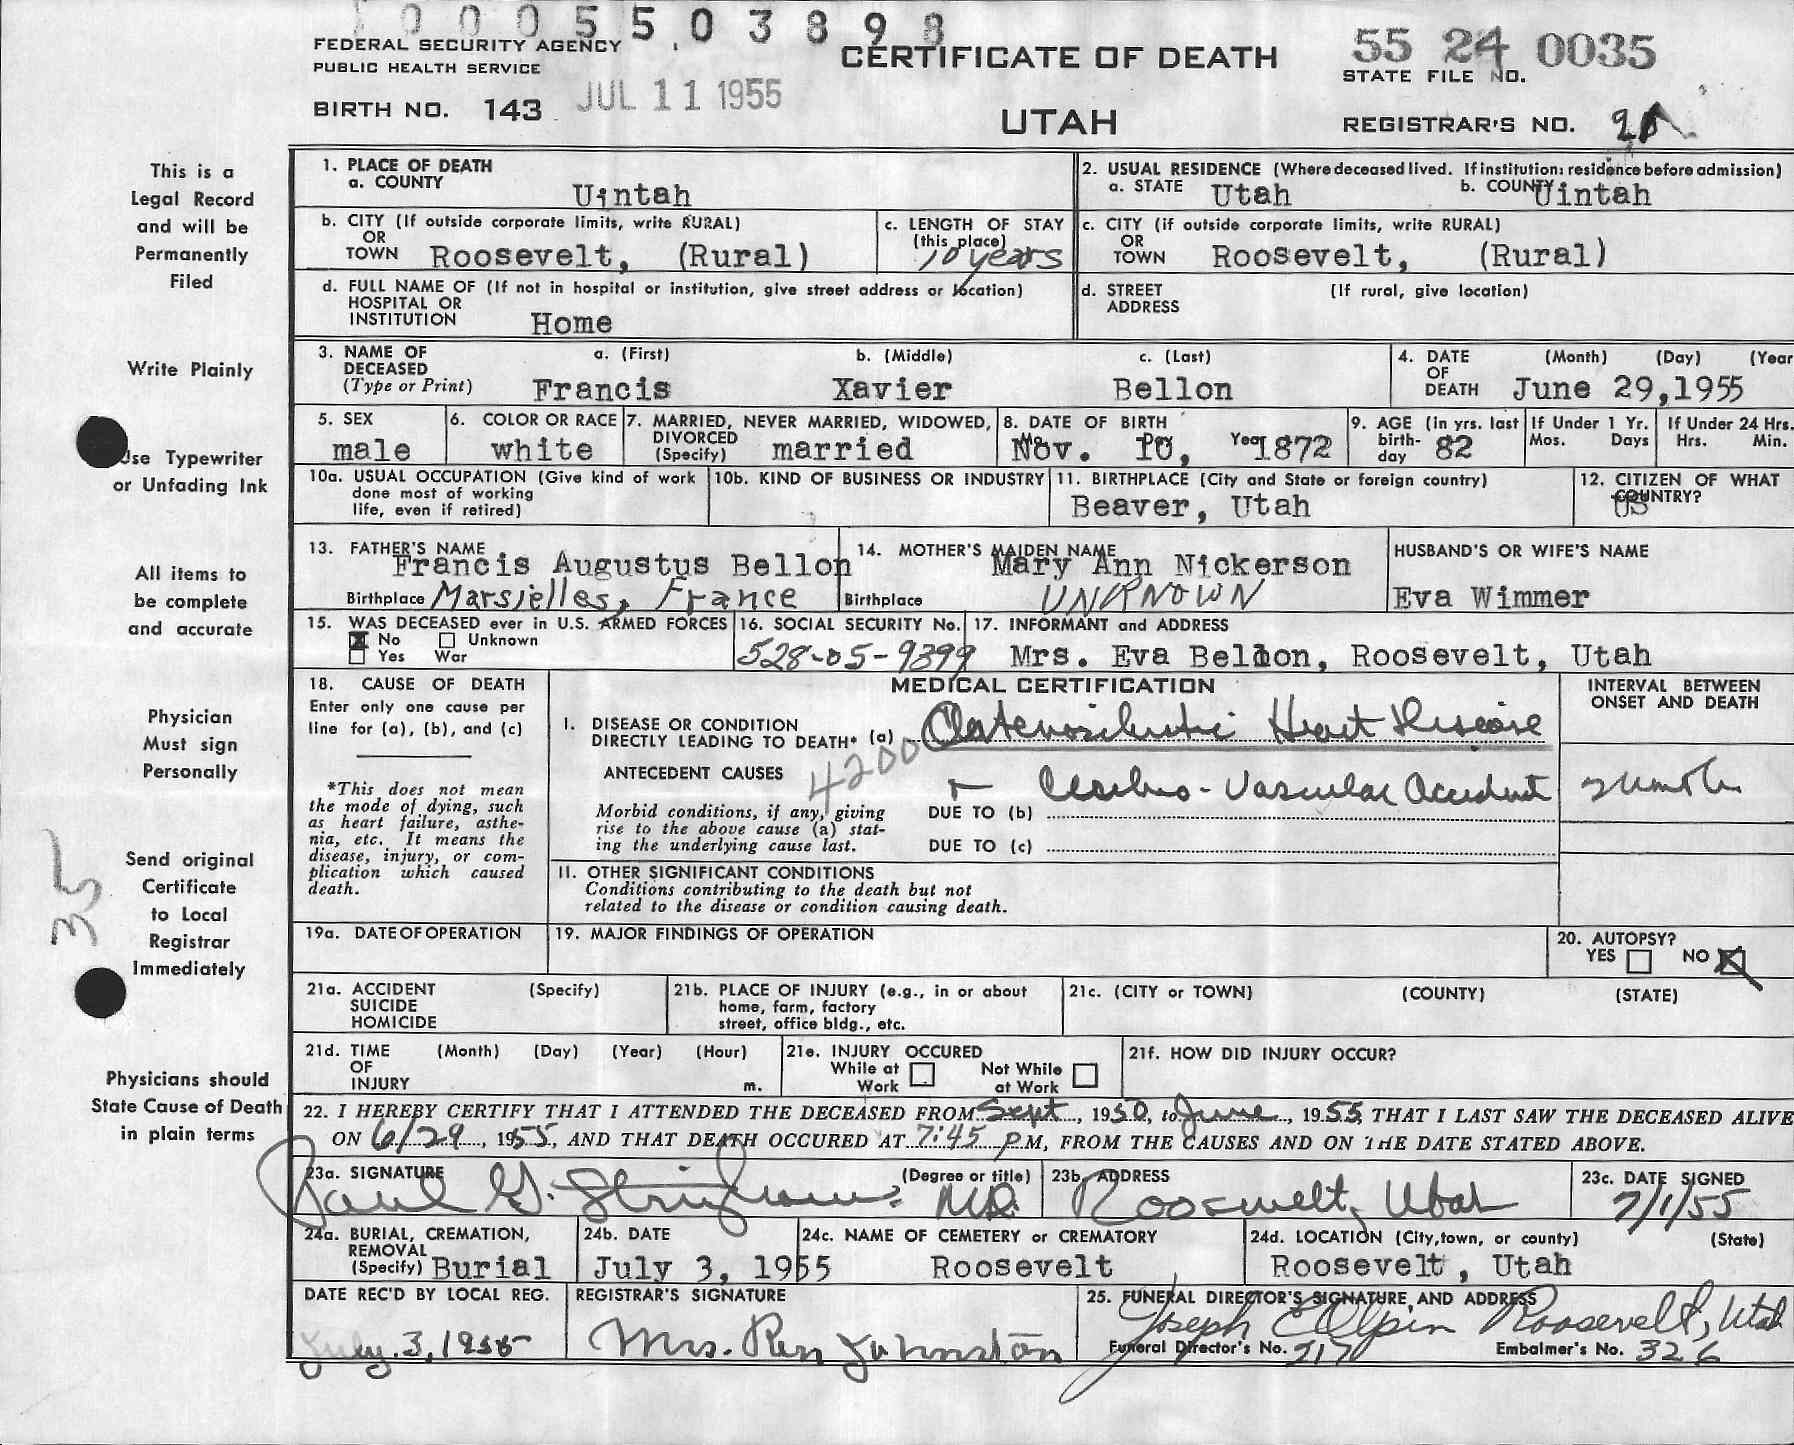 0005503898
FEDERAL SECURITY AGENCY
PUBLIC HEALTH SERVICE
CERTIFICATE OF DEATH
55 24 0035
STATE FILE NO.
BIRTH NO. 143
JUL 11 1955
UTAH
REGISTRAR'S NO.
This is a
Legal Record
and will be
Permanently
Filed
Write Plainly
Use Typewriter
or Unfading Ink
All items to
be complete
and accurate
Physician
Must sign
Personally
Send original
Certificate
to Local
Registrar
Immediately
Physicians should
State Cause of Death
in plain terms
35
1. PLACE OF DEATH
a. COUNTY Uintah
2. USUAL RESIDENCE (Where deceased lived. If institution: residence before admission)
a. STATE Utah b. COUNTY Uintah
b. CITY (If outside corporate limits, write RURAL)
OR
TOWN Roosevelt, (Rural)
c. LENGTH OF STAY
(this place)
10 years
c. CITY (if outside corporate limits, write RURAL)
OR
TOWN Roosevelt, (Rural)
d. FULL NAME OF (If not in hospital or institution, give street address or location)
HOSPITAL OR
INSTITUTION Home
d. STREET (If rural, give location)
ADDRESS
3. NAME OF
DECEASED
(Type or Print)
a. (First) b. (Middle) c. (Last)
Francis Xavier Bellon
4. DATE (Month) (Day) (Year
OF
DEATH June 29,1955
5. SEX
male
6. COLOR OR RACE
white
7. MARRIED, NEVER MARRIED, WIDOWED,
DIVORCED
(Specify) married
8. DATE OF BIRTH
Nov. 10, Year 1872
9. AGE (in yrs. last
birth-
day 82
If Under 1 Yr.
Mos. Days
If Under 24 Hrs.
Hrs. Min.
10a. USUAL OCCUPATION (Give kind of work
done most of working
life, even if retired)
10b. KIND OF BUSINESS OR INDUSTRY
11. BIRTHPLACE (City and State or foreign country)
Beaver, Utah
12. CITIZEN OF WHAT
COUNTRY?
US
13. FATHER'S NAME
Francis Augustus Bellon
Birthplace Marsielles, France
14. MOTHER'S MAIDEN NAME
Mary Ann Nickerson
Birthplace UNKNOWN
HUSBAND'S OR WIFE'S NAME
Eva Wimmer
15. WAS DECEASED ever in U.S. ARMED FORCES
No Unknown
Yes War
16. SOCIAL SECURITY No.
528-05-9399
17. INFORMANT and ADDRESS
Mrs. Eva Bellon, Roosevelt, Utah
18. CAUSE OF DEATH
Enter only one cause per
line for (a), (b), and (c)
*This does not mean
the mode of dying, such
as heart failure, asthe-
nia, etc. It means the
disease, injury, or com-
plication which caused
death.
MEDICAL CERTIFICATION
INTERVAL BETWEEN
ONSET AND DEATH
I. DISEASE OR CONDITION
DIRECTLY LEADING TO DEATH* (a) Arteriosclerotic Heart Disease
4200
ANTECEDENT CAUSES
Morbid conditions, if any, giving
rise to the above cause (a) stat-
ing the underlying cause last.
+ Cerebro-Vascular Accident
DUE TO (b)
DUE TO (c)
II. OTHER SIGNIFICANT CONDITIONS
Conditions contributing to the death but not
related to the disease or condition causing death.
19a. DATE OF OPERATION
19. MAJOR FINDINGS OF OPERATION
20. AUTOPSY?
YES NO
21a. ACCIDENT (Specify)
SUICIDE
HOMICIDE
21b. PLACE OF INJURY (e.g., in or about
home, farm, factory
street, office bldg., etc.
21c. (CITY or TOWN) (COUNTY) (STATE)
21d. TIME (Month) (Day) (Year) (Hour)
OF
INJURY m.
21e. INJURY OCCURED
While at Work
Not While at Work
21f. HOW DID INJURY OCCUR?
22. I HEREBY CERTIFY THAT I ATTENDED THE DECEASED FROM Sept, 1950, to June, 1955, THAT I LAST SAW THE DECEASED ALIVE
ON 6/29, 1955, AND THAT DEATH OCCURED AT 7:45 P M, FROM THE CAUSES AND ON THE DATE STATED ABOVE.
23a. SIGNATURE (Degree or title)
Paul G. Stringham M.D.
23b. ADDRESS
Roosevelt, Utah
23c. DATE SIGNED
7/1/55
24a. BURIAL, CREMATION,
REMOVAL
(Specify) Burial
24b. DATE
July 3, 1955
24c. NAME OF CEMETERY or CREMATORY
Roosevelt
24d. LOCATION (City, town, or county) (State)
Roosevelt, Utah
DATE REC'D BY LOCAL REG.
July 3, 1955
REGISTRAR'S SIGNATURE
Mrs. Ren Johnston
25. FUNERAL DIRECTOR'S SIGNATURE, AND ADDRESS
Joseph E Olpin Roosevelt, Utah
Funeral Director's No. 217
Embalmer's No. 326